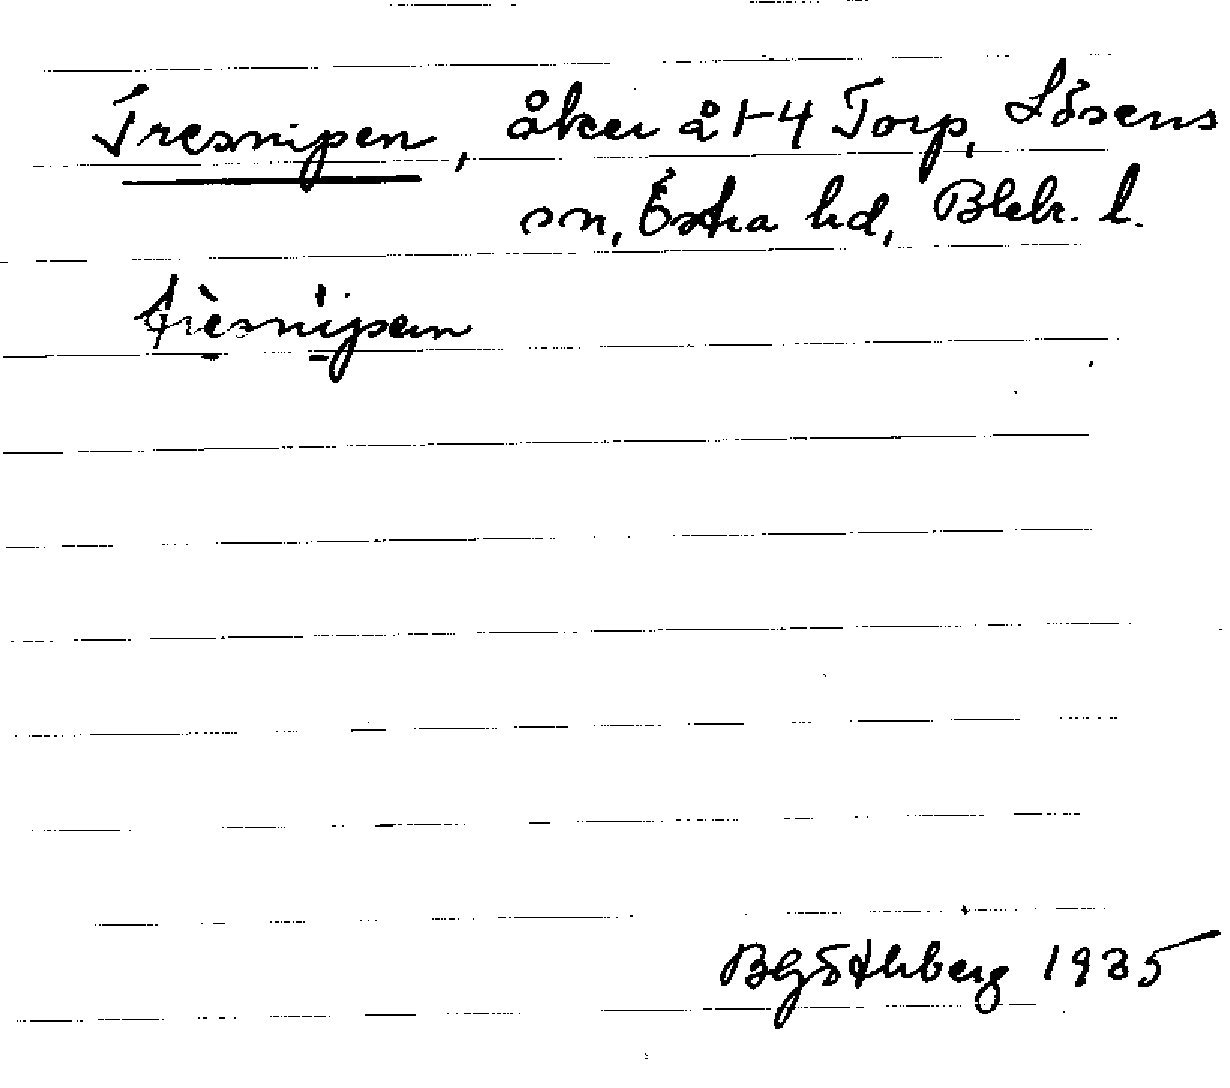 Tresnipen, åker å 1-4 Torp, Lösens
sn, Östra hd, Blek. l.
trèsnìpen
BGöthberg 1935